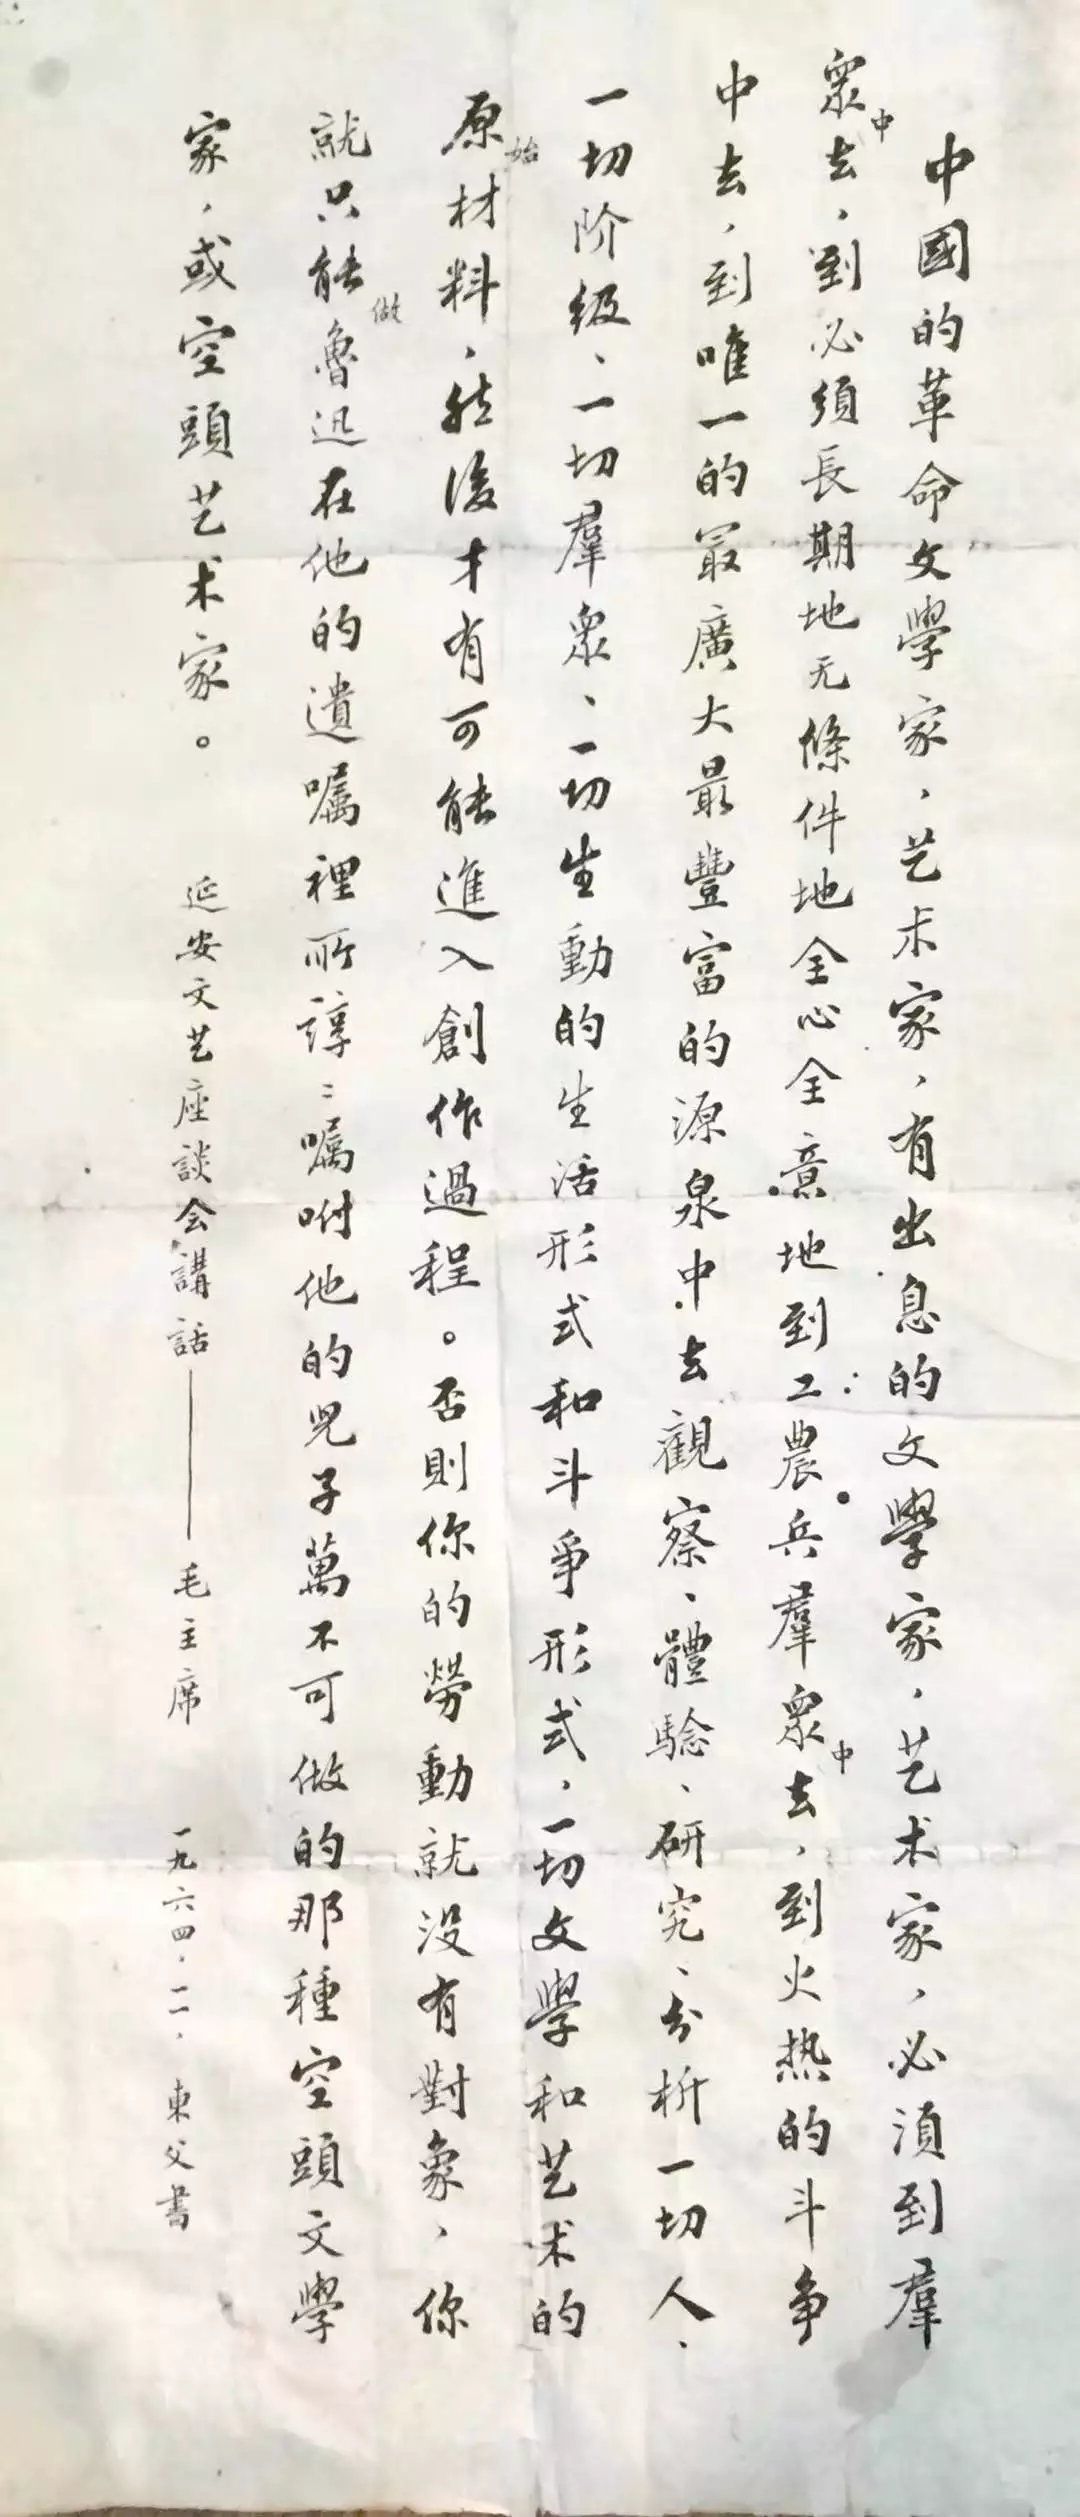 中國的革命文學家，艺术家，有出息的文學家，艺术家，必須到羣
衆中去，到必须長期地无條件地全心全意地到工農兵羣衆中去，到火热的斗争
中去，到唯一的最廣大最豐富的源泉中去觀察、體驗、研究、分析一切人、
一切阶级、一切羣衆、一切生動的生活形式和斗爭形式，一切文學和艺术的
原始材料，然後才有可能進入創作過程。否則你的勞動就没有對象，你
就只能做魯迅在他的遺嘱裡所諄〻嘱咐他的兒子萬不可做的那種空頭文學
家，或空頭艺术家。
延安文艺座談会講話——毛主席
一九六四．一一．東父書